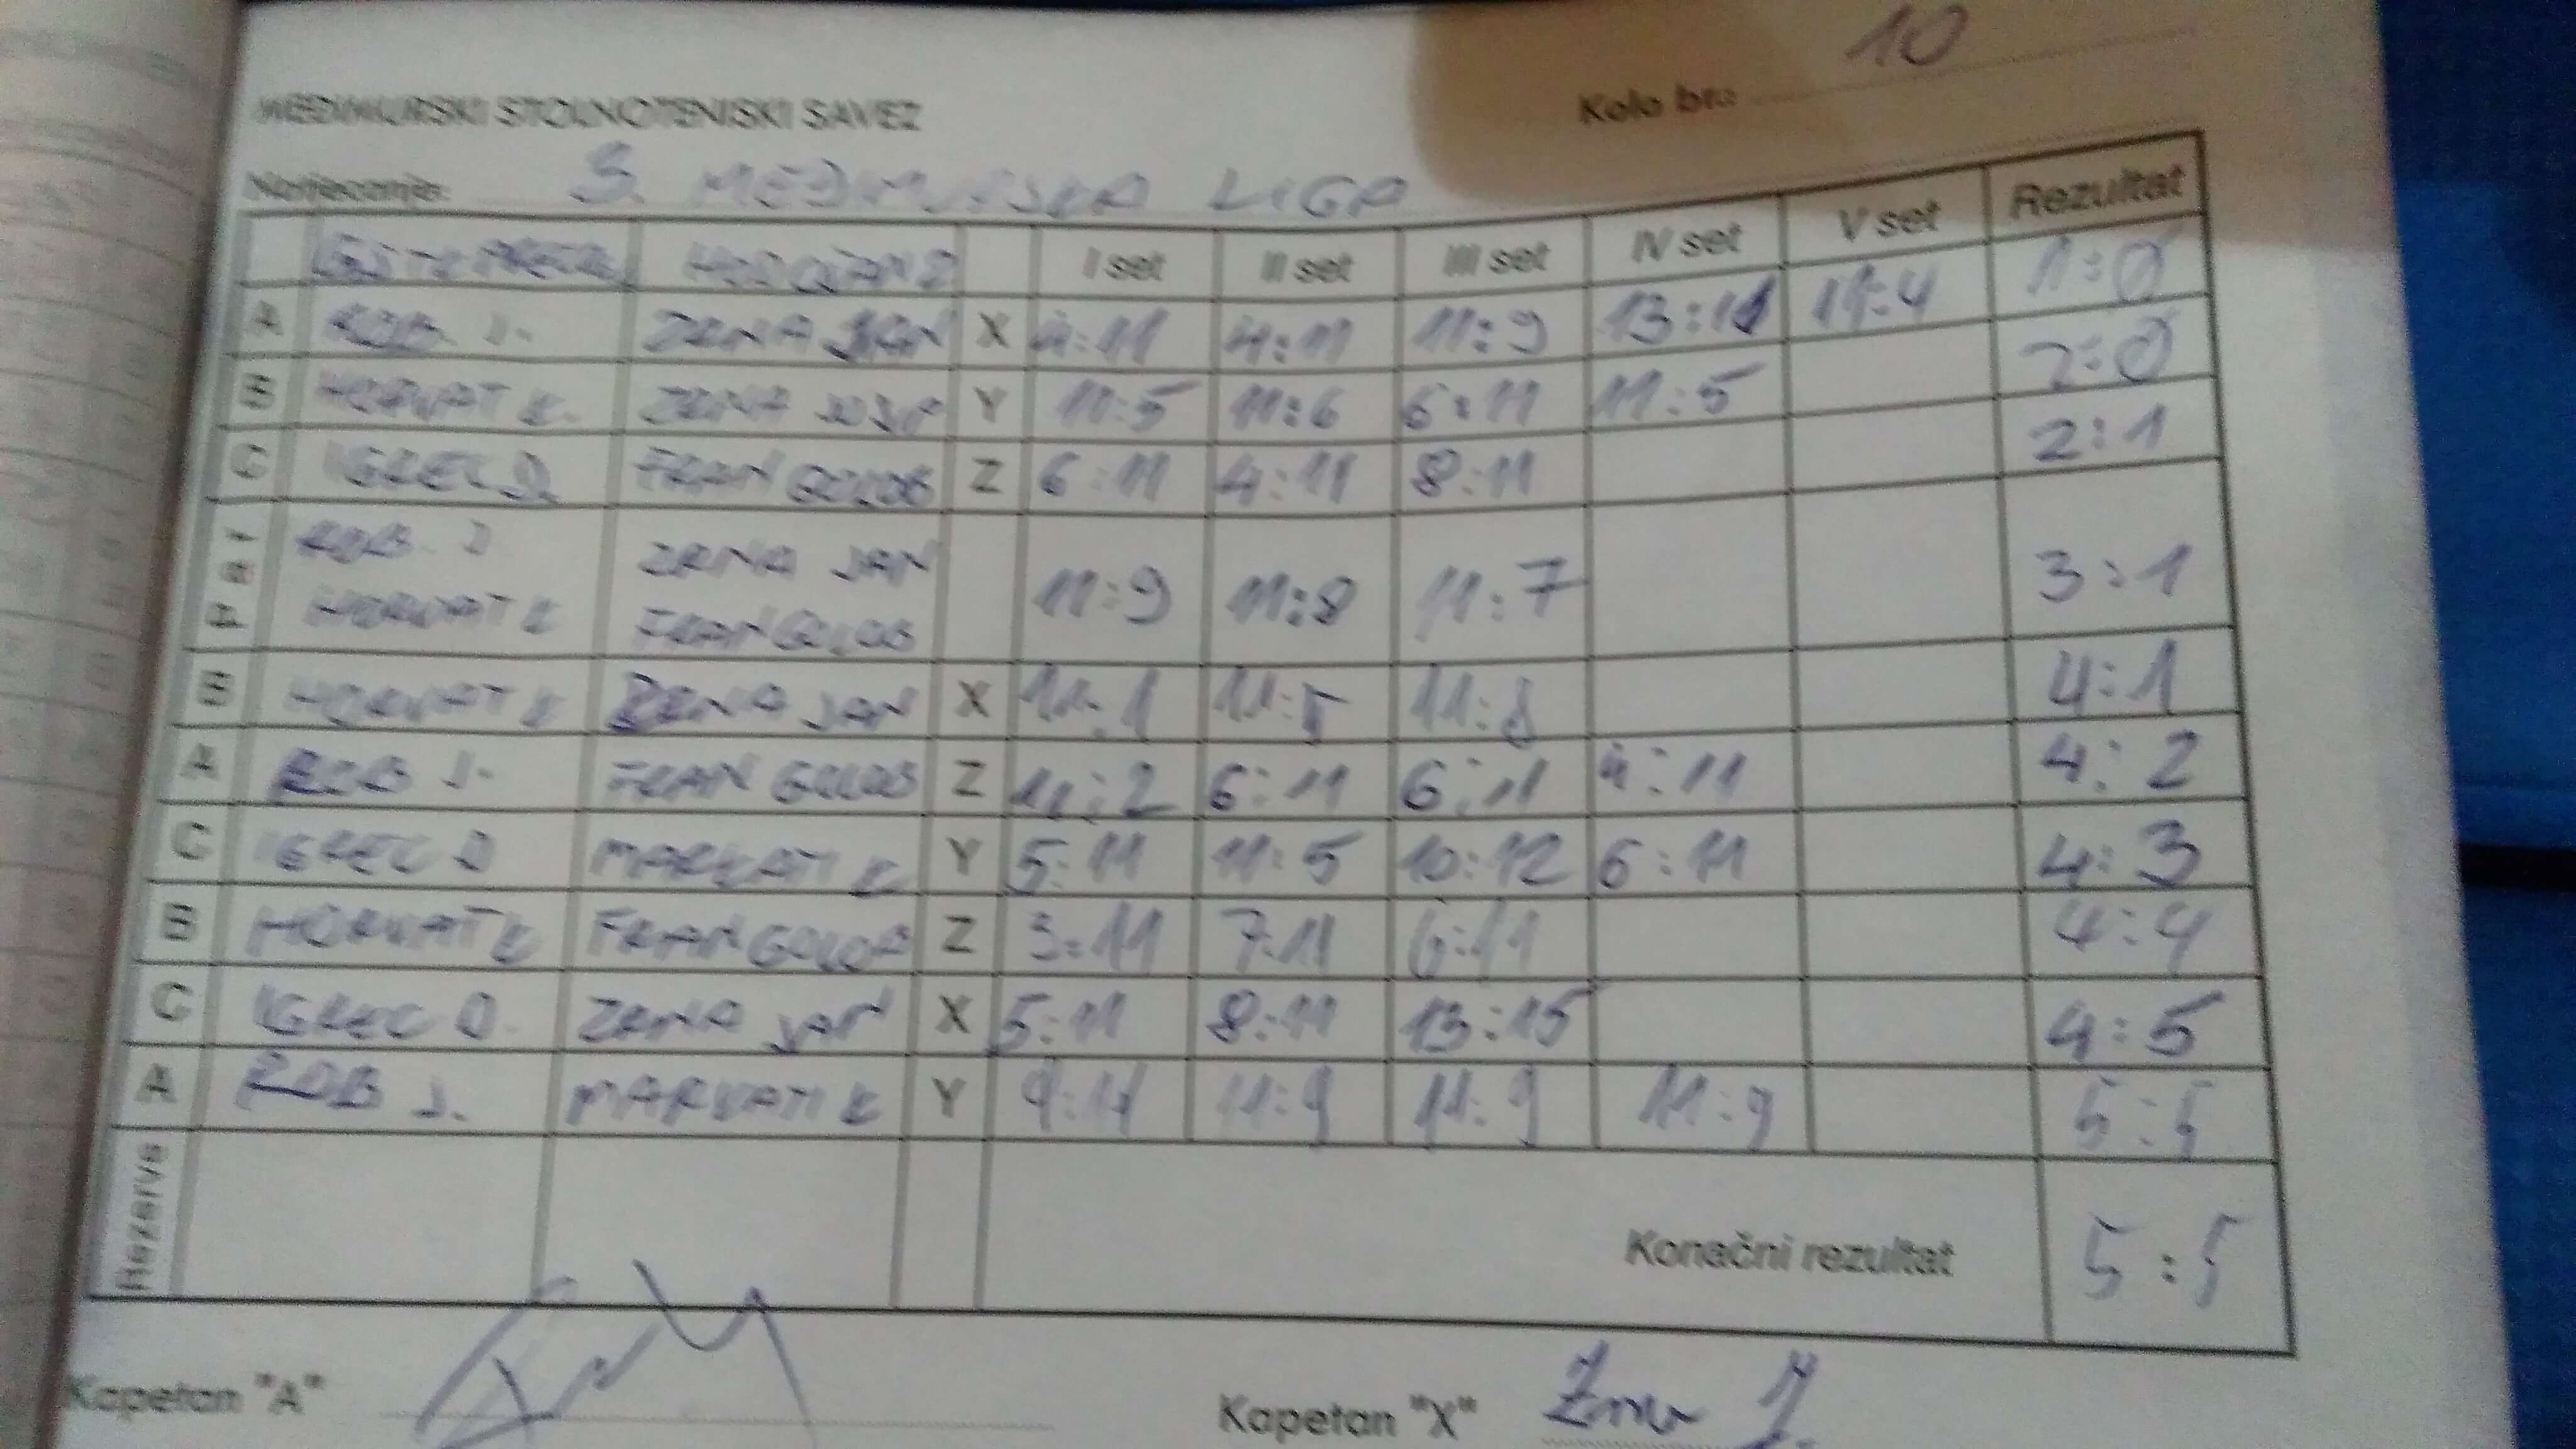 MEĐIMURSKI STOLNOTENISKI SAVEZ
Kolo br.: 10
Natjecanje: 3. MEĐIMURSKA LIGA
I set II set III set IV set V set Rezultat
A ROB J. ZRNA JAN X 4:11 4:11 11:9 13:11 11:4 1:0
B HORVAT K. ZRNA JOSIP Y 11:5 11:6 6:11 11:5 2:0
C IGREC D. FRAN GOLOB Z 6:11 4:11 8:11 2:1
ROB J. ZRNA JAN
11:9 11:8 11:7 3:1
HORVAT K FRAN GOLOB
B HORVAT K ZRNA JAN X 11:1 11:5 11:8 4:1
A ROB J. FRAN GOLOB Z 11:2 6:11 6:11 4:11 4:2
C IGREC D MARKATI K Y 5:11 11:5 10:12 6:11 4:3
B HORVAT K FRAN GOLOB Z 3:11 7:11 6:11 4:4
C IGREC D. ZRNA JAN X 5:11 8:11 13:15 4:5
A ROB J. MARKATI K Y 9:11 11:9 11:9 11:9 5:5
Rezerve
Konačni rezultat 5:5
Kapetan "A"
Kapetan "X" Zrna J.